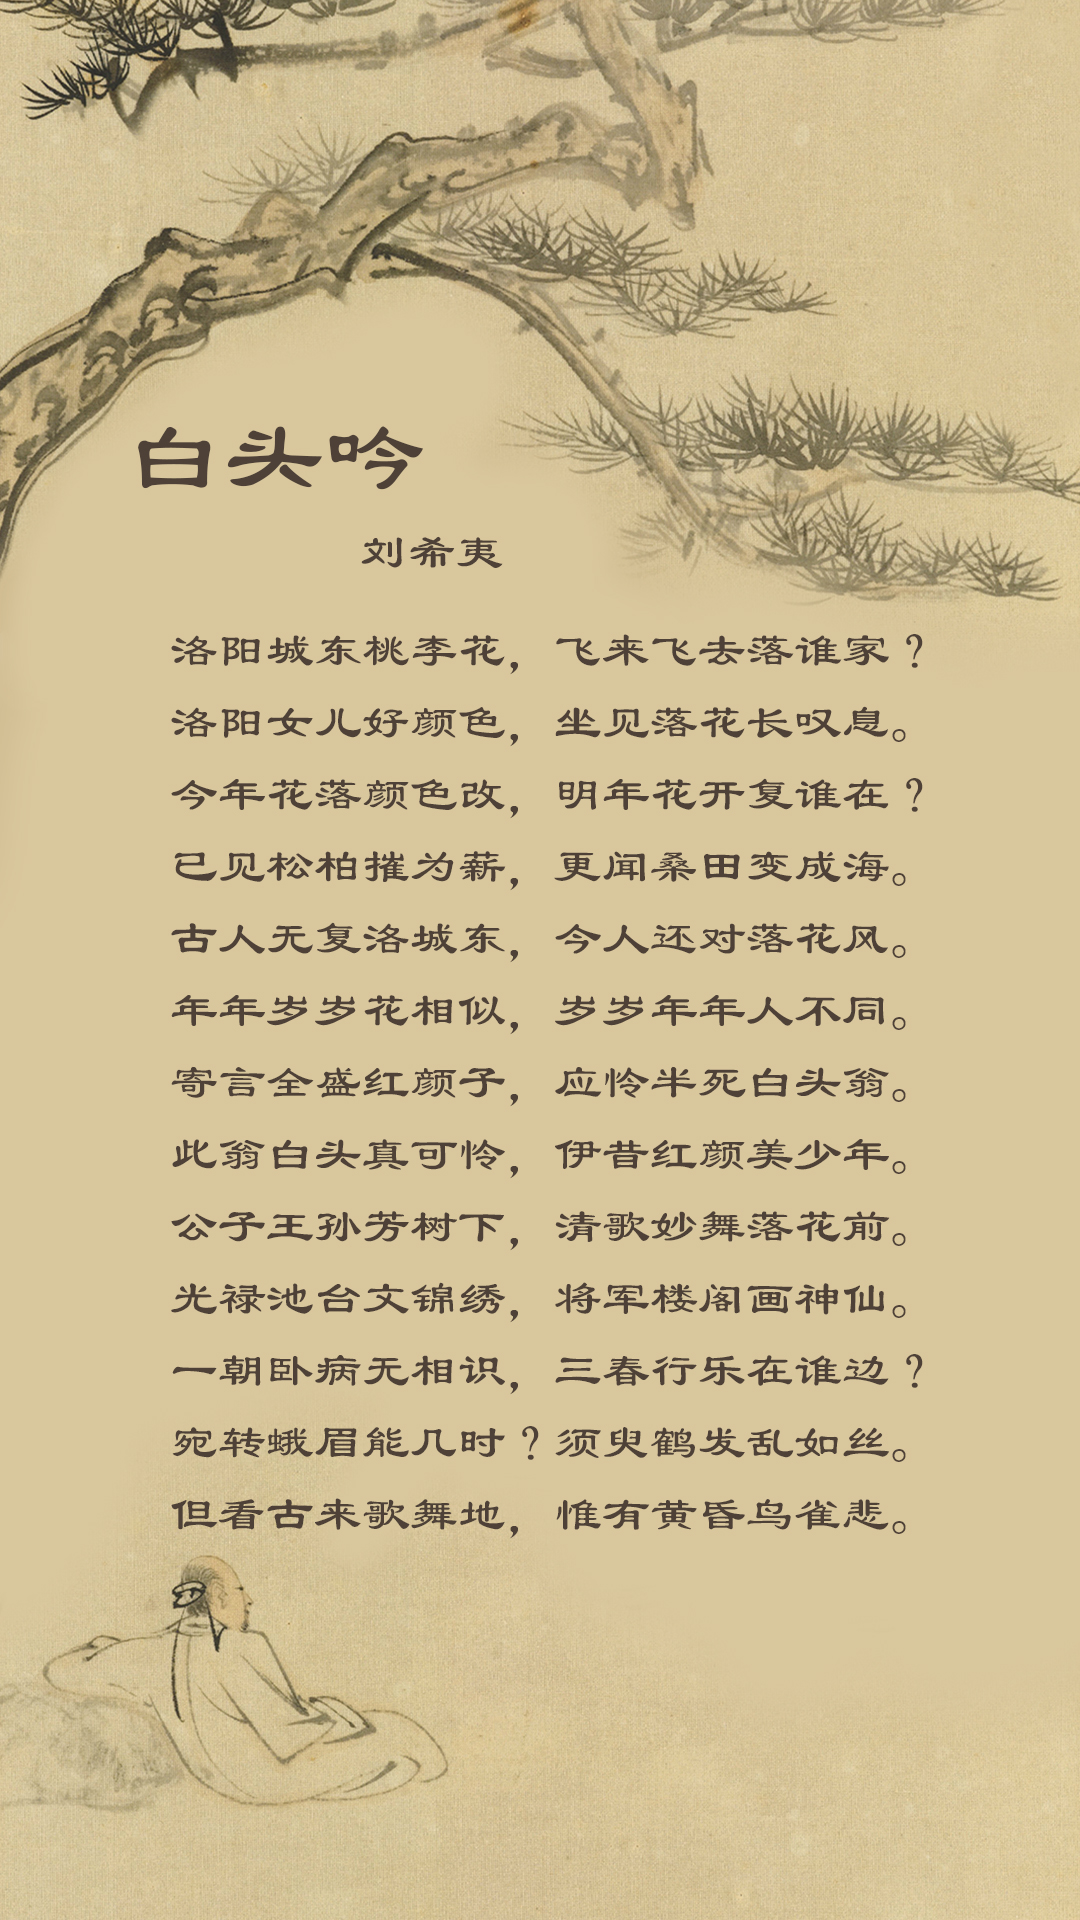 白头吟
刘希夷
洛阳城东桃李花，飞来飞去落谁家？
洛阳女儿好颜色，坐见落花长叹息。
今年花落颜色改，明年花开复谁在？
已见松柏摧为薪，更闻桑田变成海。
古人无复洛城东，今人还对落花风。
年年岁岁花相似，岁岁年年人不同。
寄言全盛红颜子，应怜半死白头翁。
此翁白头真可怜，伊昔红颜美少年。
公子王孙芳树下，清歌妙舞落花前。
光禄池台文锦绣，将军楼阁画神仙。
一朝卧病无相识，三春行乐在谁边？
宛转蛾眉能几时？须臾鹤发乱如丝。
但看古来歌舞地，惟有黄昏鸟雀悲。